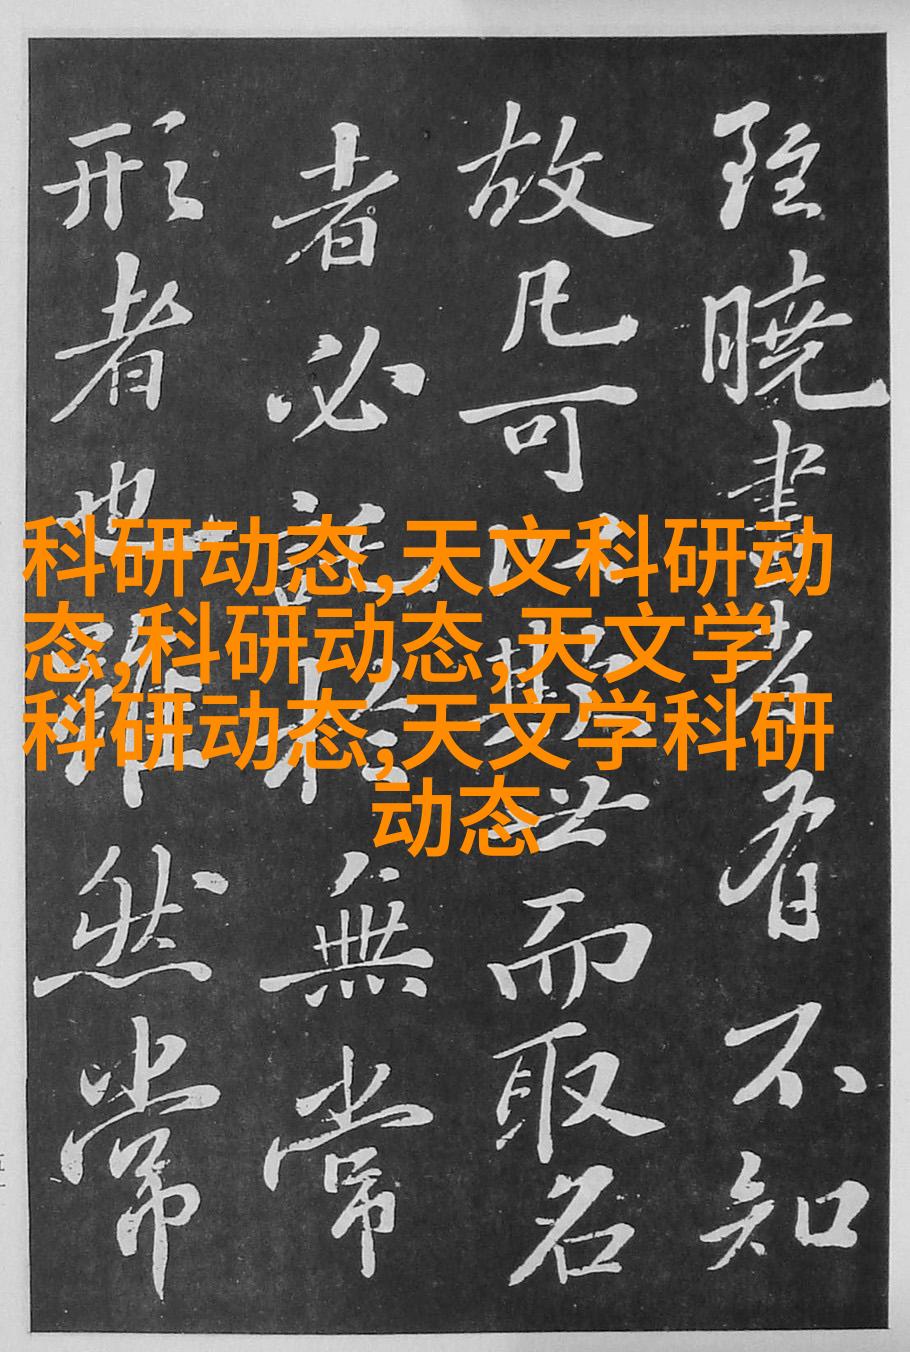 科研动态,天文科研动
态,科研动态,天文学
科研动态,天文学科研
动态
雖曉畫者有不知
故凡可以欺世而取名
者必託於無常
形者也雖然常